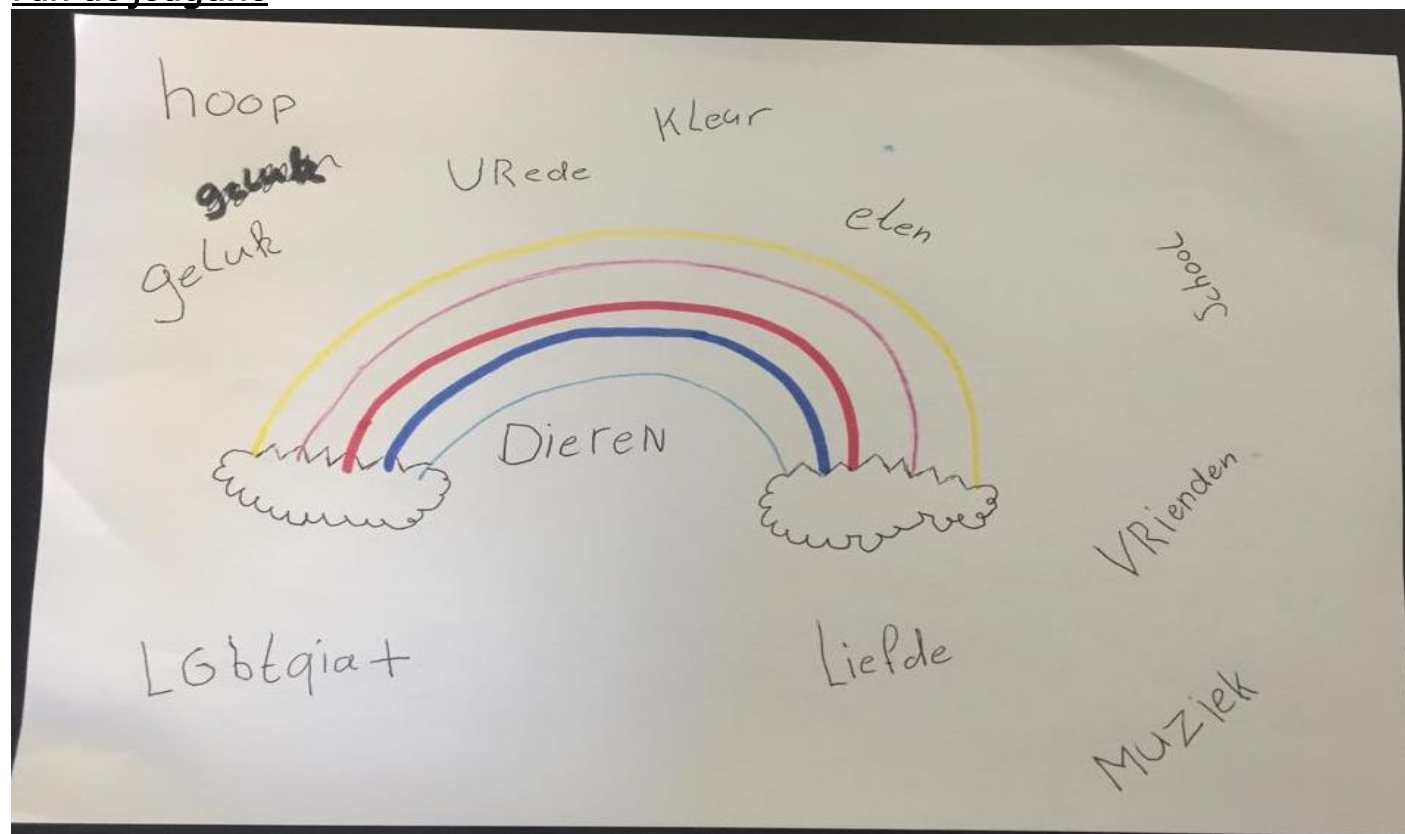 hoop
KLeur
VRede
geluk
eten
geLuk
School
DiereN
VRienden
LGbtqia+
Liefde
MuZiek